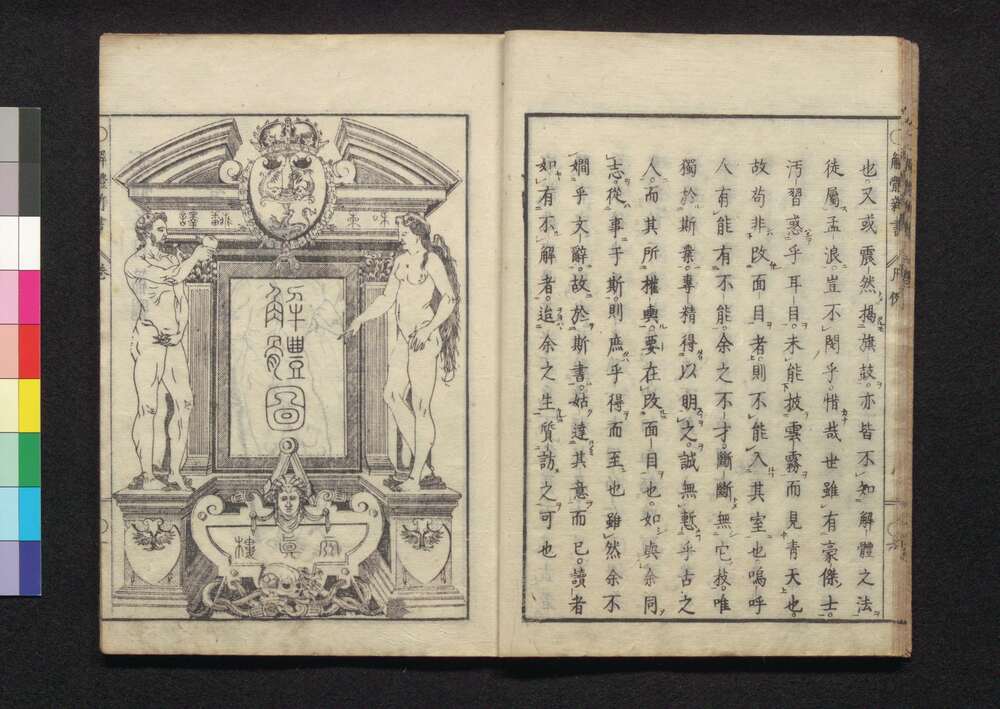 解體新書 凡例
也。又或震然揭旗鼓。亦皆不知解體之法。
徒屬孟浪。豈不閔乎。惜哉世雖有豪傑士。
汚習惑乎耳目。未能披雲霧而見青天也。
故苟非改面目者。則不能入其室也。嗚呼
人有能有不能。余之不才。斷斷無它技。唯
獨於斯業。專精得以明之。誠無慙乎古之
人。而其所權輿。要在改面目也。如與余同
志。從事于斯。則庶乎得而至也。雖然余不
嫺乎文辭。故於斯書。姑達其意而已。讀者
如有不解者。迨余之生。質訪之可也
東
翻譯
解體圖
天眞樓
解體新書 卷